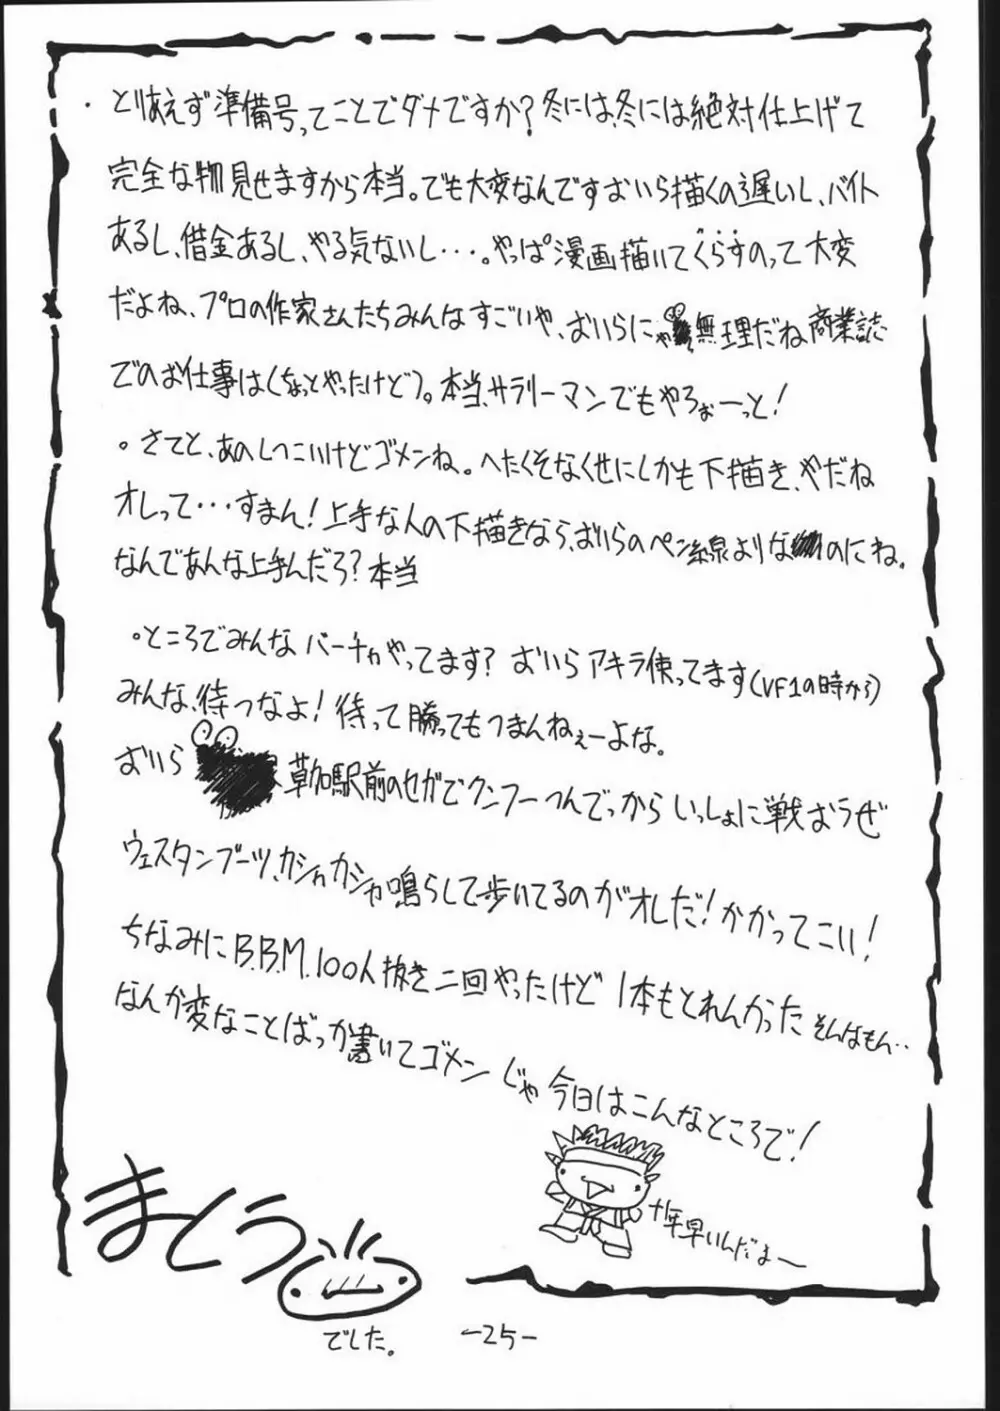 ・とりあえず準備号ってことでダナですか?冬には、冬には絶対仕上げて
完全な物見せますから本当。でも大変なんですおいら描くの遅いし、バイト
あるし、借金あるし、やる気ないし・・・。やっぱ漫画描いてくらすのって大変
だよね、プロの作家さんたちみんなすごいや、おいらにゃ無理だね商業誌
でのお仕事は(ちょっとやったけど)。本当、サラリーマンでもやろぉーっと!
。さてと、あのしつこいけどゴメンね。へたくそなくせにしかも下描き、やだね
オレって・・・すまん!上手な人の下描きなら、おいらのペン線よりな のにね。
なんであんな上手んだろ?本当
。ところでみんなバーチャやってます?おいらアキラ使ってます(VF1の時から)
みんな、待つなよ!待って勝ってもつまんねぇーよな。
おいら 草加駅前のセガでクンフーつんでっからいっしょに戦おうぜ
ウェスタンブーツ、カシャカシャ鳴らして歩いてるのがオレだ!かかってこい!
ちなみにB.B.M.100人抜き二回やったけど1本もとれんかったそんなもん‥
なんか変なことばっか書いてゴメン じゃ今日はこんなところで!
十年早いんだよー
まとう
でした。
-25-